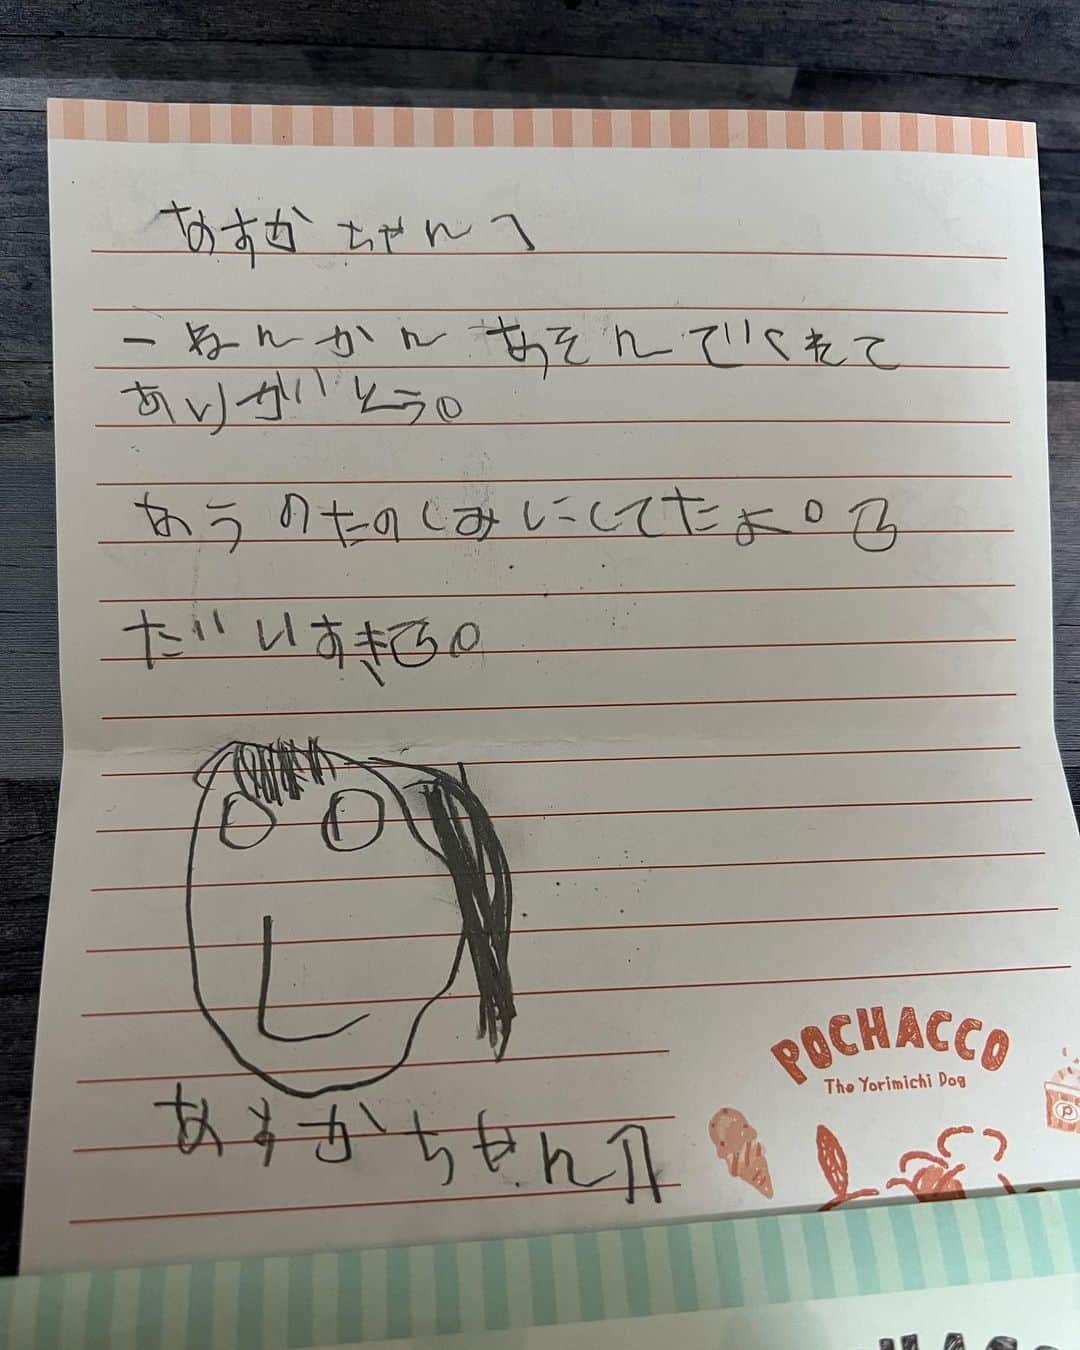 あすかちゃんへ
一ねんかんあそんでくれて
ありがとう。
あうのたのしみにしてたよ。
だいすき。
あすかちゃん⇑
POCHACCO
The Yorimichi Dog
P